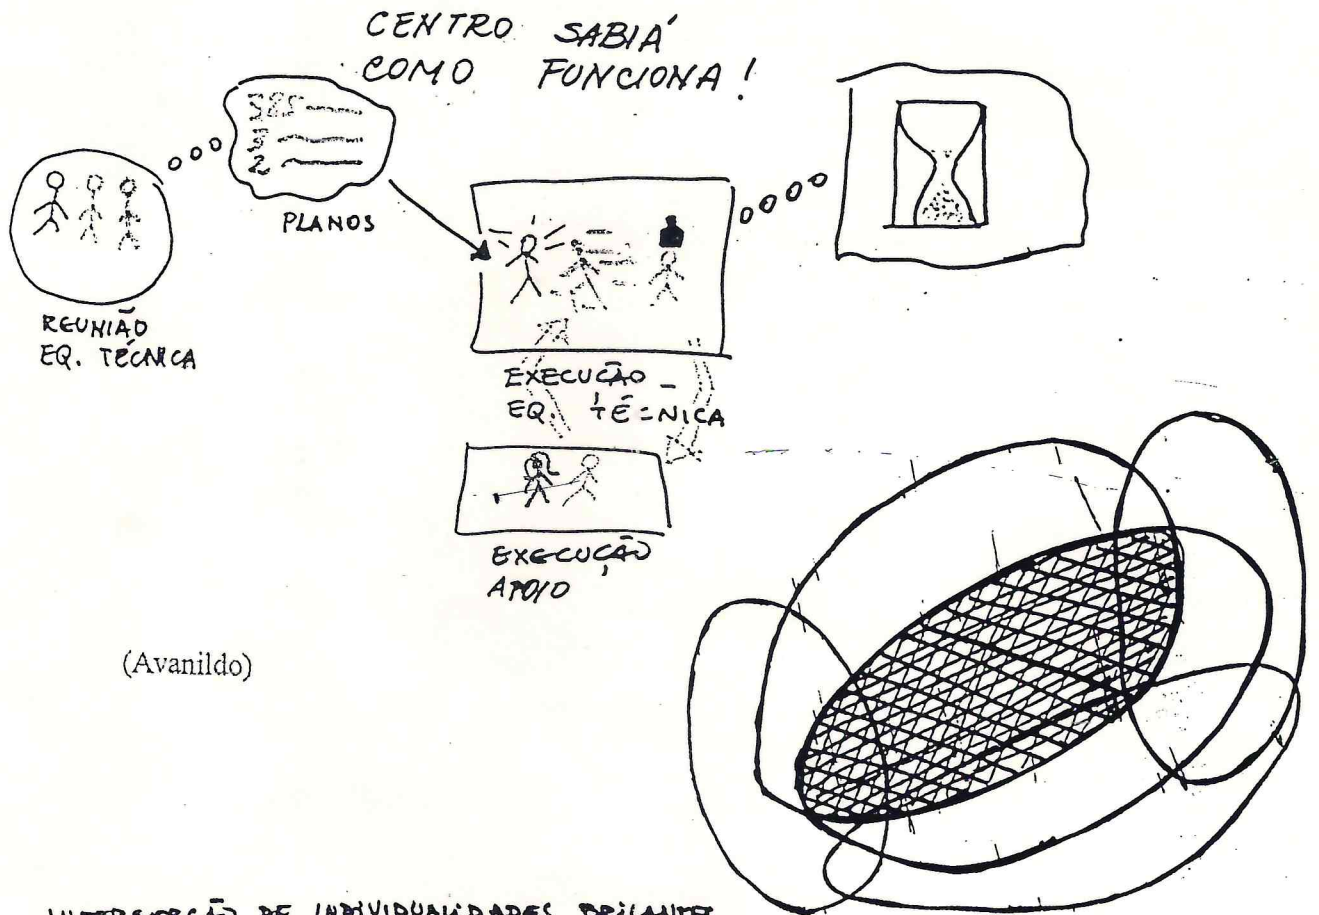 CENTRO SABIÁ
COMO FUNCIONA!
PLANOS
REUNIÃO
EQ. TÉCNICA
EXECUÇÃO
EQ. TÉCNICA
EXECUÇÃO
APOIO
(Avanildo)
DE INDIVIDUALIDADES